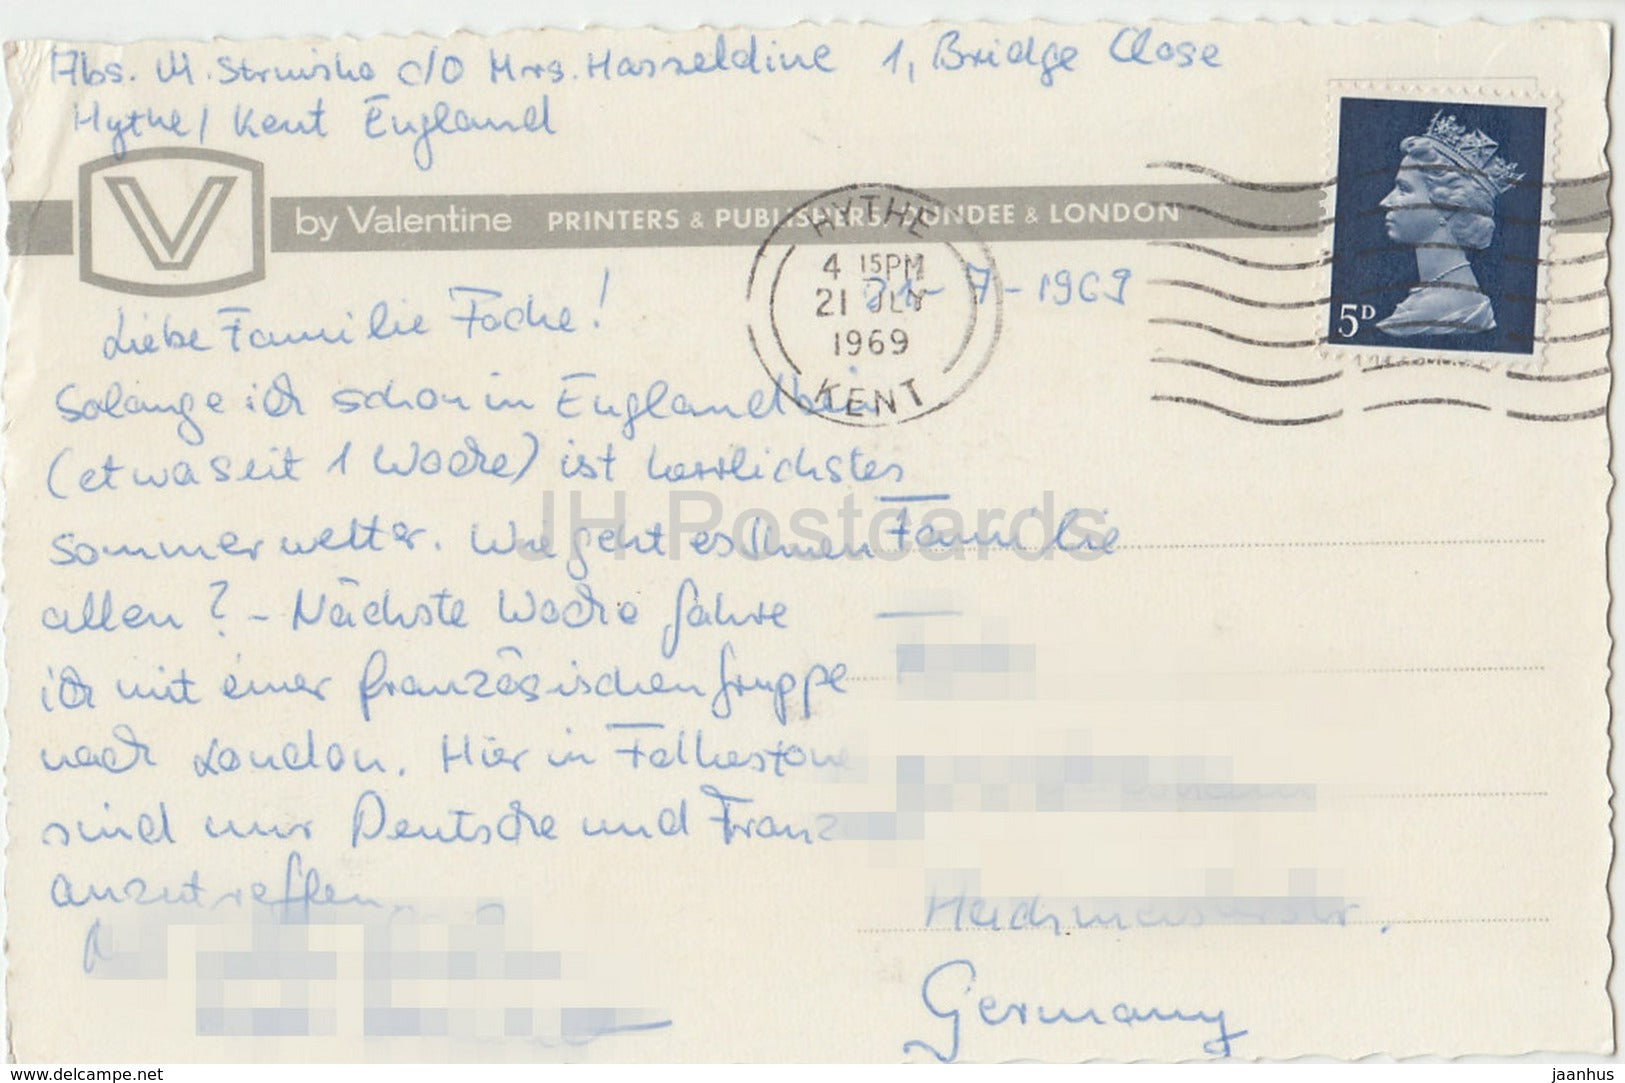 Abs. M. Struiska c/o Mrs. Hasseldine 1, Bridge Close
Hythe/ Kent England
V
by Valentine PRINTERS & PUBLISHERS, DUNDEE & LONDON
HYTHE
4 15PM
21 JLY
1969
KENT
5D
21-7-1969
Liebe Familie Focke!
Solange ich schon in England bin
(etwa seit 1 Woche) ist herrlichstes
Sommerwetter. Wie geht es Ihnen
allen? - Nächste Woche fahre
ich mit einer französischen Gruppe
nach London. Hier in Folkestone
sind nur Deutsche und
anzutreffen.
Familie
Germany
JH Postcards
www.delcampe.net
jaanhus